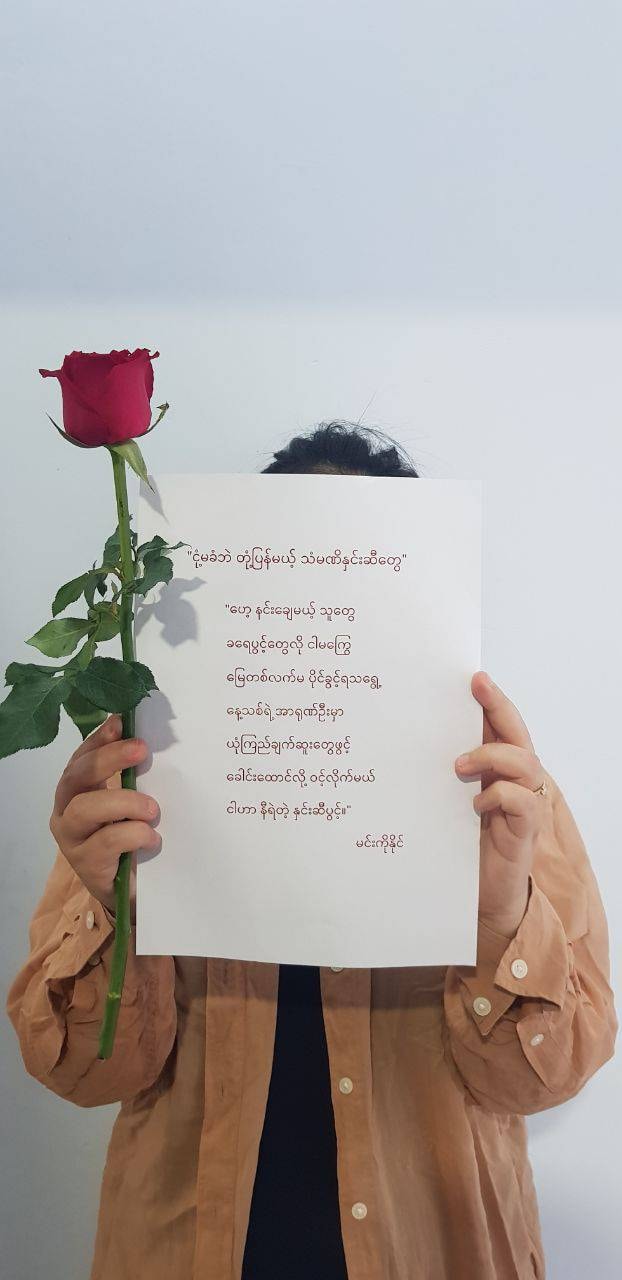 "ငုံ့မခံဘဲ တုံ့ပြန်မယ့် သံမဏိနှင်းဆီတွေ"
"ဟေ့ နင်းချေမယ့် သူတွေ
ခရေပွင့်တွေလို ငါမကြွေ
မြေတစ်လက်မ ပိုင်ခွင့်ရသရွေ့
နေ့သစ်ရဲ့အာရုဏ်ဦးမှာ
ယုံကြည်ချက်ဆူးတွေဖွင့်
ခေါင်းထောင်လို့ ဝင့်လိုက်မယ်
ငါဟာ နီရဲတဲ့ နှင်းဆီပွင့်။"
မင်းကိုနိုင်